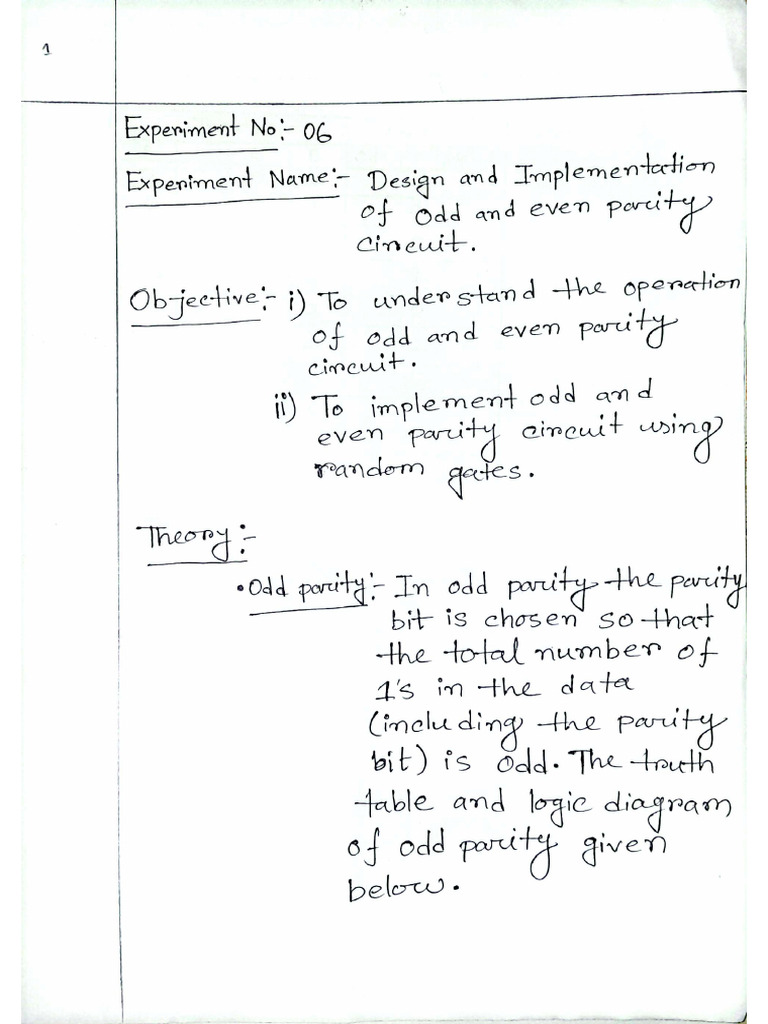 1
Experiment No:- 06
Experiment Name:- Design and Implementation
of odd and even parity
circuit.
Objective:- i) To understand the operation
of odd and even parity
circuit.
ii) To implement odd and
even parity circuit using
random gates.
Theory:-
• Odd parity:- In odd parity the parity
bit is chosen so that
the total number of
1's in the data
(including the parity
bit) is odd. The truth
table and logic diagram
of odd parity given
below.